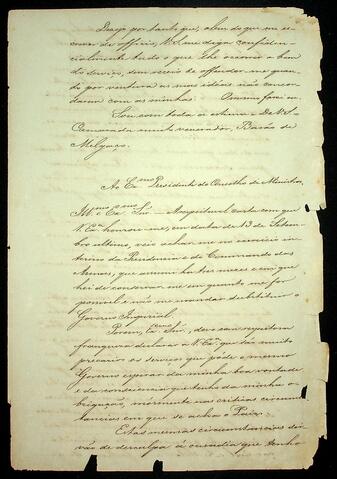 Desejo portanto que, alem do que me
de officio, V. S. me diga confiden-
cialmente tudo o que lhe occorrer a bem
do serviço, sem receio de offender-me quan-
do por ventura as suas ideas não concor-
darem com as minhas.
Sou com toda a estima De V. S.
Camarada muito venerador, Barão de
Melgaço.
Ao Exmo Presidente do Conselho de Ministros.
Illmo e Exmo Snr. A respeitavel carta com que
V. Exa honrou-me, em data de 13 de Setem-
bro ultimo, veio achar-me no exercicio in-
terino da Presidencia e do Commando das
Armas, que assumi ha tres mezes e em que
hei de conservar-me em quanto me for
possivel e não me mandar substituir o
Governo Imperial.
Porem, Exmo Snr, devo com respeitosa
franqueza declarar a V. Exa que são muito
precarios os serviços que póde o mesmo
Governo esperar da minha boa vontade
e da consciencia que tenho da minha o-
brigação, mórmente nas criticas circums-
tancias em que se acha o Paiz.
Estas mesmas circumstancias ser-
virão de desculpa á ousadia que tenho